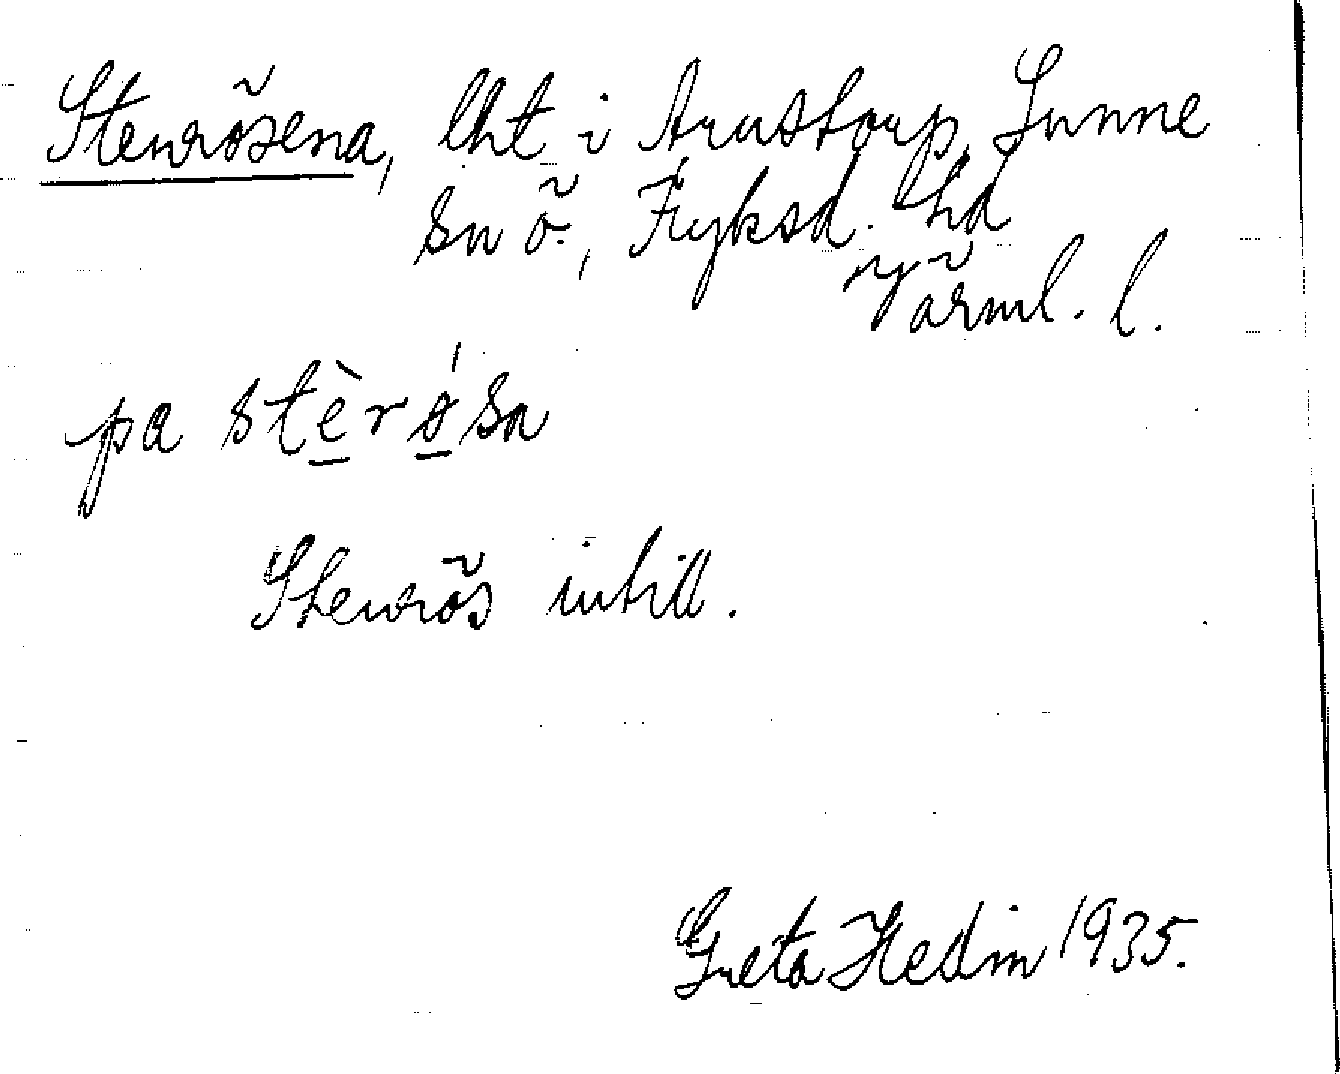 Stenrösena, lht i Arustorp, Sunne
sn ö., Fryksd. hd
Värml. l.
pa stè̠rǿ̠sa
Stenrös intill.
Greta Hedin 1935.